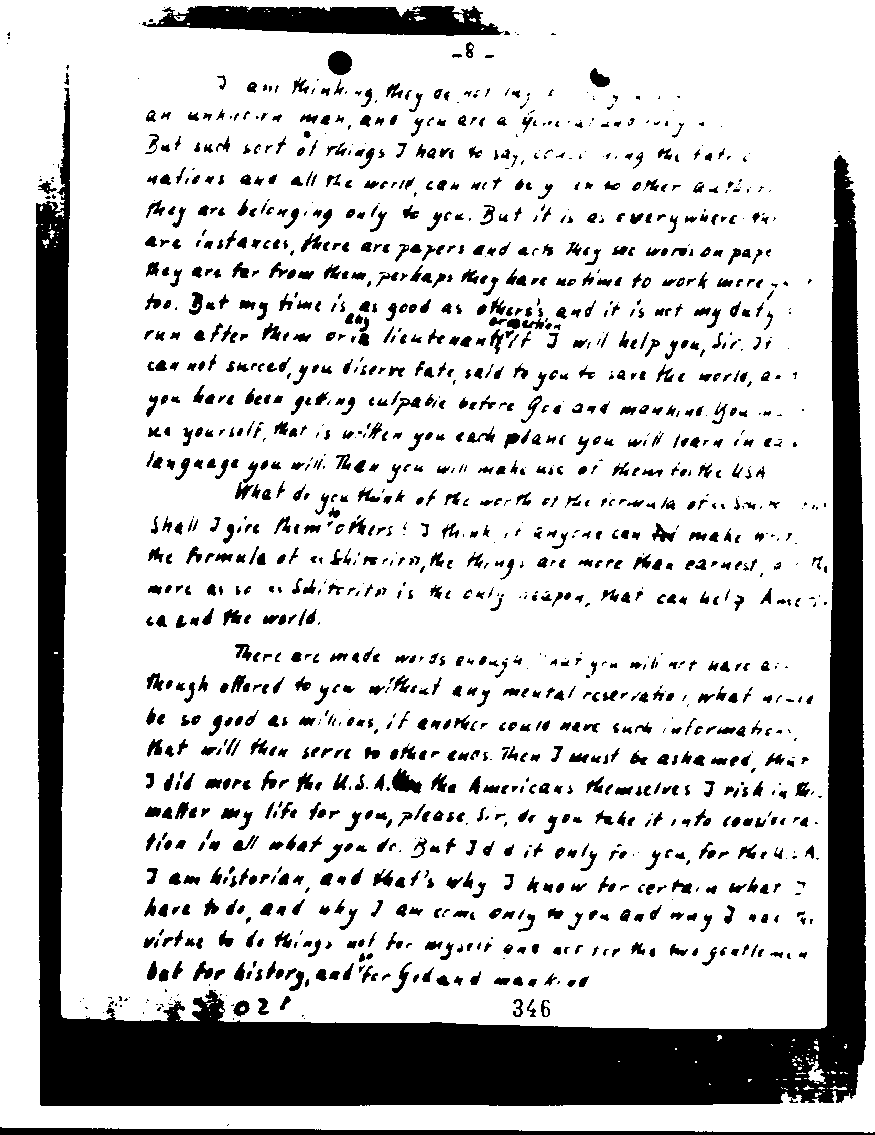 -8-
I am thinking, they do not
an unknown man, and you are a General and
But such sort of things I have to say, concerning the fate
nations and all the world, can not be given to other
they are belonging only to you. But it is as everywhere
are instances, there are papers and acts They see words on
they are far from them, perhaps they have no time to work more
too. But my time is as good as others's and it is not my duty
run after them or in any lieutenant If I will help you, Sir. If
can not succed, you diserve fate, said to you to save the world,
you have been getting culpable before God and mankind. You
see yourself, that is written you each plane you will learn in
language you will. Than you will make use of them for the USA
What do you think of the worth of the formula of
Shall I give them to others! I think, if anyone can make
the formula of "Schitorito", the things are more than earnest, the
more as so as Schitorito is the only weapon, that can help Ameri-
ca and the world.
There are made words enough, you will not have
though offered to you without any mental reservation, what
be so good as millions, if another could have such informations,
that will then serve to other ends. Then I must be ashamed, that
I did more for the U.S.A. the Americans themselves I risk in this
matter my life for you, please, Sir, do you take it into considera-
tion in all what you do. But I did it only for you, for the U.S.A.
I am historian, and that's why I know for certain what I
have to do, and why I am come only to you and why I
virtue to do things not for myself and not for the two gentlemen
but for history, and so for God and mankind
346